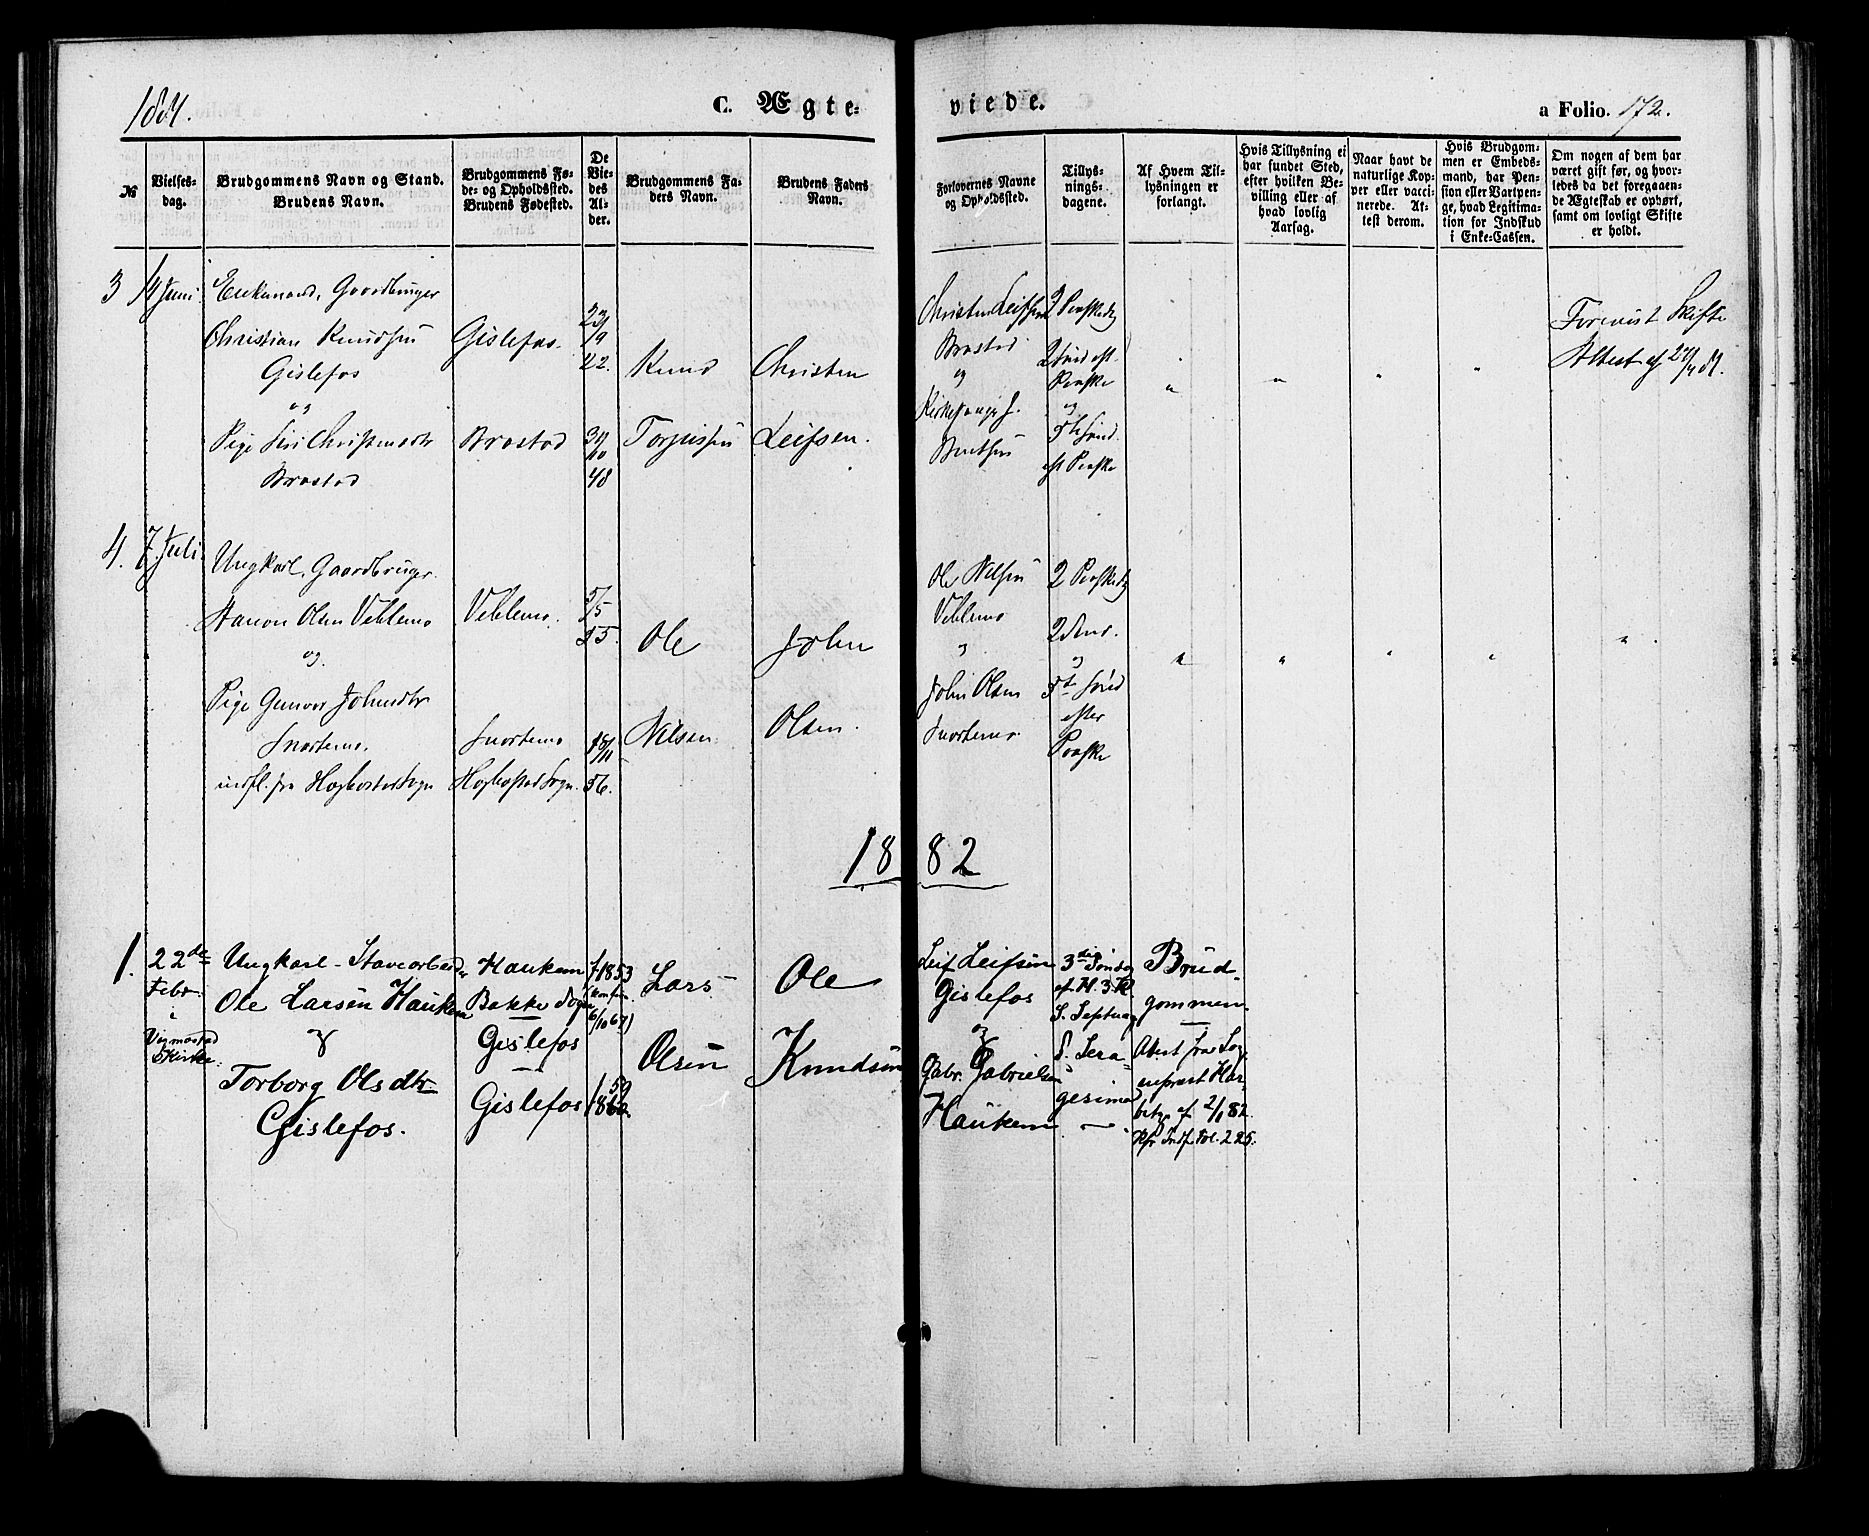 1881.
C. Ægte-
viede.
a Folio. 172.
№
Vielses-
dag.
Brudgommens Navn og Stand.
Brudens Navn.
Brudgommens Fø-
de- og Opholdssted.
Brudens Fødested.
De
Vie-
des
Al-
der.
Brudgommens Fa-
ders Navn.
Brudens Faders
Navn.
Forlovernes Navne
og Opholdssted.
Tillys-
nings-
dagene.
Af Hvem Til-
lysningen er
forlangt.
Hvis Tillysning ei
har fundet Sted,
efter hvilken Be-
villing eller af
hvad lovlig
Aarsag.
Naar havt de
naturlige Kop-
per eller vacci-
nerede. At-
test derom.
Hvis Brudgom-
men er Embeds-
mand, har Pen-
sion eller Vartpen-
ge, hvad Legitima-
tion for Indskud
i Enke-Cassen.
Om nogen af dem har
været gift før, og hvor-
ledes da det foregaaen-
de Ægteskab er ophørt,
samt om lovligt Skifte
er holdt.
3
Juni
Enkemand, Gaardbruger
Christian Knudsen
Gislefos
og
Pige Siri Christensdtr
Brastad
Gislefos.
Brastad
23/9
22.
30/10
48
Knud
Torjussen
Christen
Leifsen.
Christen Leifsen
Brastad
og
Kirkesanger J.
Berntsen
2 Paaskedg
2 Sønd eft.
Paaske
og
3te Sønd.
eft Paaske
Forevist Skifte
Attest af
4.
7 Juli
Ungkarl, Gaardbruger
Haavor Olsen Veblemo
og
Pige Gunvor Johnsdtr
Snartemo.
indfl. fra Hægbostad Sogn
Veblemo.
Snartemo
Hægbostad Sogn.
5/5
55.
18/11
56.
Ole
Nilsen
John
Olsen.
Ole Nilsen
Veblemo
og
John Olsen
Snartemo
2 Paaskedg
2 Sønd.
og
3te Sønd
efter
Paaske
1882
1.
22de
Febr.
i
Vigmostad
Kirke.
Ungkarl - Stavearbeider
Ole Larsen Haukem
&
Torborg Olsdtr
Gislefos.
Haukem
Bakke Sogn
Gislefos
Gislefos
f. 1853
(Konfir.
6/10 67)
59
1860
Lars
Olsen
Ole
Knudsen
Leif Leifsen
Gislefos
og
Gabr. Gabrielsen
Haukem
3die Søndag
ef. H. 3 K
S. Septuag
S. Sexa-
gesima
Brud-
gommen
Attest fra Sog-
nepræst
af 2/1 82.
Kfr Indf. Fol. 225.